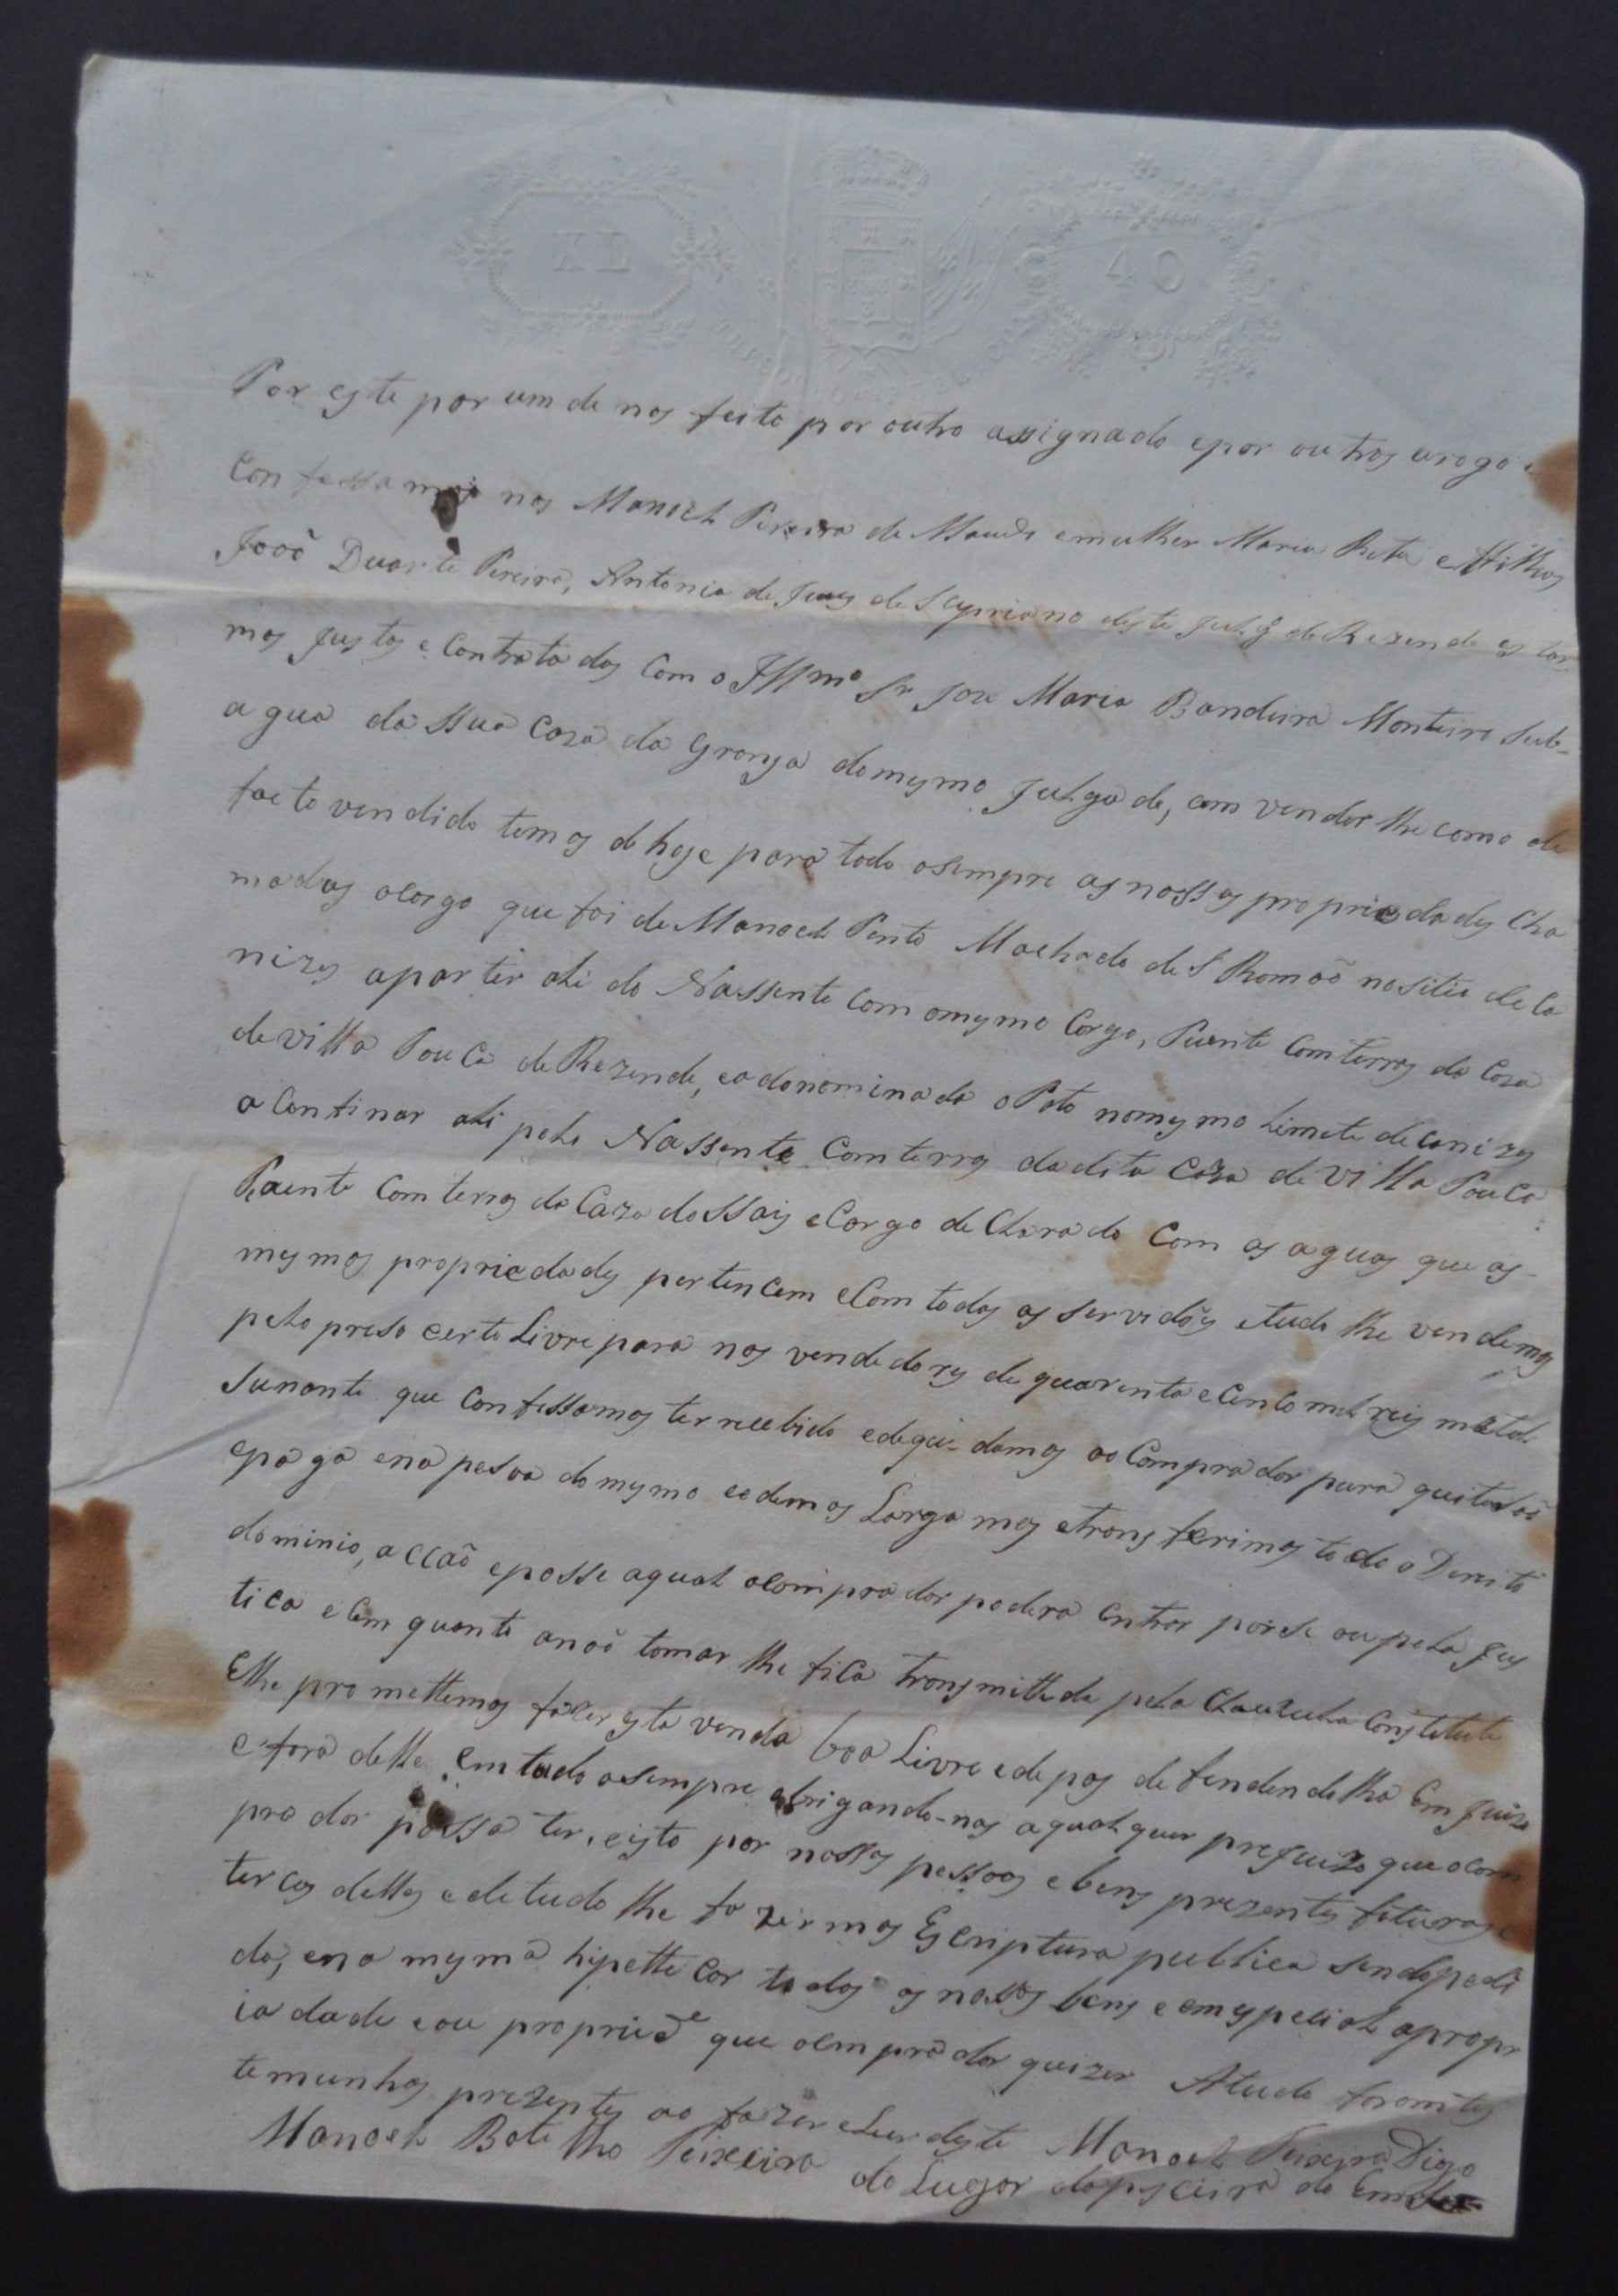 XL
40
Por este por um de nos feito por outro assignado epor outros arogo
Confessamos nos Manoel Pereira de Massas emulher Maria Rita efilhos
Joaõ Duarte Pereira, Antonia de Jesus de S Cypriano deste Julg.º de Rezende esta
mos justos e Contratados Com o Illmo Sr Joze Maria Bandeira Monteiro Sub-
agua da ssua Caza da Granja domesmo Julgado, em vender lhe como de
facto vendido temos de hoje para todo osempre as nossas propriedades Cha
madas ocorgo que foi de Manoel Pinto Machado de S Romaõ nositio de Ca
nizes apartir ali do Nassente Com omesmo Corgo, Puente Com terras da Caza
de villa Pouca de Rezende, eadenominada o Poto nomesmo Limete de canizes
a Confinar ali pelo Nassente Com terras dadita Caza de villa Pouca
Puente Com terras da Caza dossais e Corgo de Charado Com as aguas que as
mesmas propriedades pertencem e Com todas as servidões etudo lhe vendemos
pelo preso certo Livre para nos vendedores de quarenta e Cinco mil reis metal
sunante que Confessamos ter recebido edeque damos ao Comprador pura quitasaõ
epaga ena pesoa domesmo cedemos Largamos etransferimos todo o Dereito
dominio, acçaõ eposse aqual oComprador podera entrar porsi ou pela Jus
tica e Em quanto anaõ tomar lhe fica transmittida pela Clauzula Constitute
Elhe promettemos fazer esta venda boa Livre edepas defendendolha Em juizo
efora delle Em tudo osempre obrigando-nos aqualquer prejuizo que oCom
prador possa ter, eisto por nossas pessoas ebens prezentes futuros e
tercos dellas edetudo lhe fazermos Escriptura publica sendopedi
da, ena mesma hipotte Car todos os nossos bens e emespecial apropr
iadade eou propried.e que oComprador quizer Atudo foramtes
temunhas prezentes ao fazer eLer deste Manoel Teixeira Digo
Manoel Botelho Teixeira do Lugar